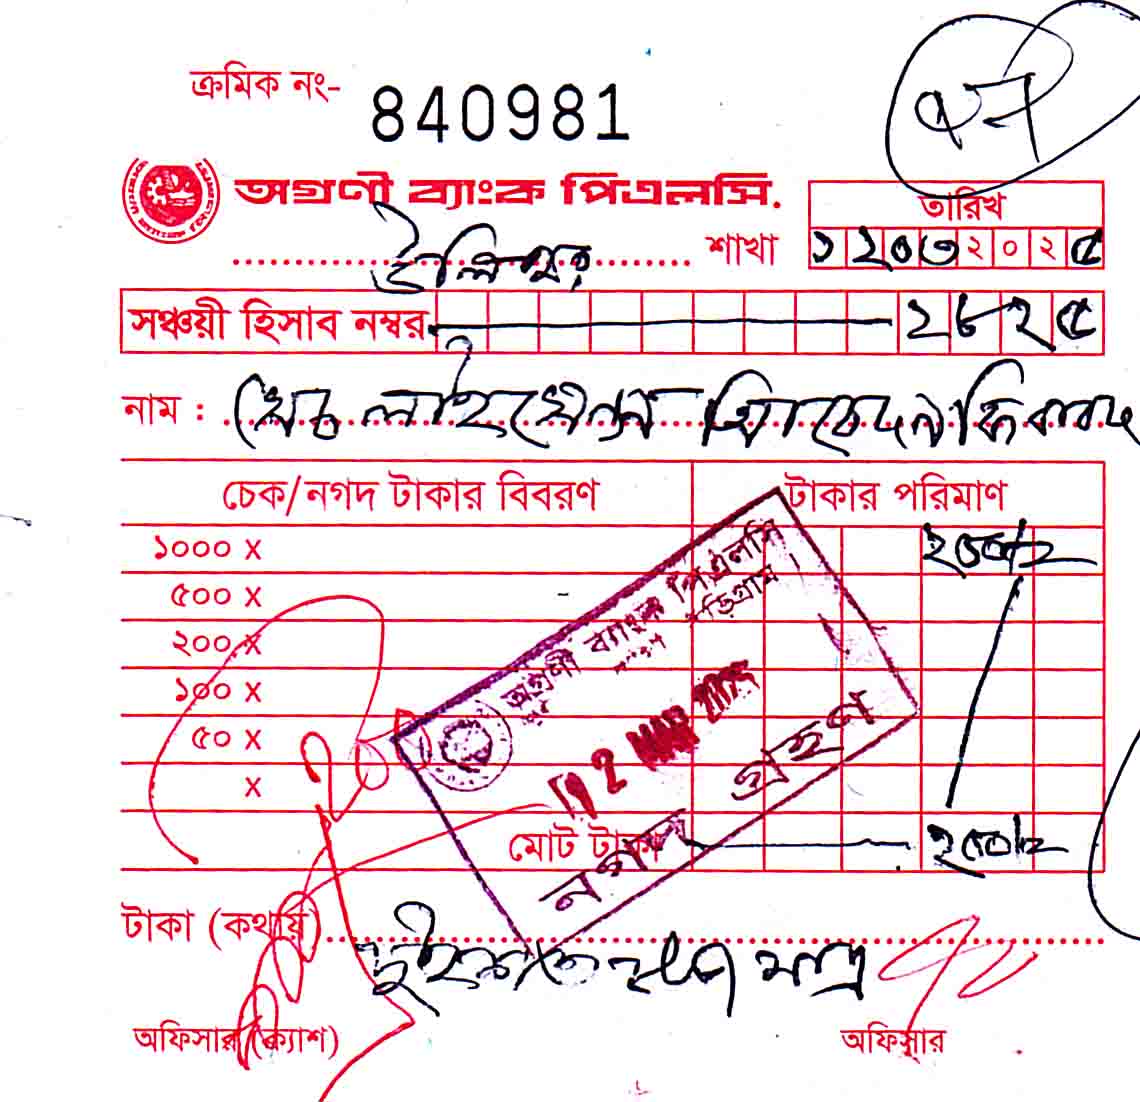 ক্রমিক নং- 840981
অগ্রণী ব্যাংক পিএলসি.
তারিখ
উলিপুর শাখা
১২০৩২০২৫
সঞ্চয়ী হিসাব নম্বর ২৮২৫
নাম : লাইসেন্স আবেদন ফি বাবদ
চেক/নগদ টাকার বিবরণ টাকার পরিমাণ
১০০০ X
৫০০ X
২০০ X
১০০ X
৫০ X
X
মোট টাকা
অগ্রণী ব্যাংক পিএলসি
কুড়িগ্রাম
12 MAR 2025
নগদ গ্রহণ
টাকা (কথায়)
মাত্র
অফিসার (ক্যাশ) অফিসার